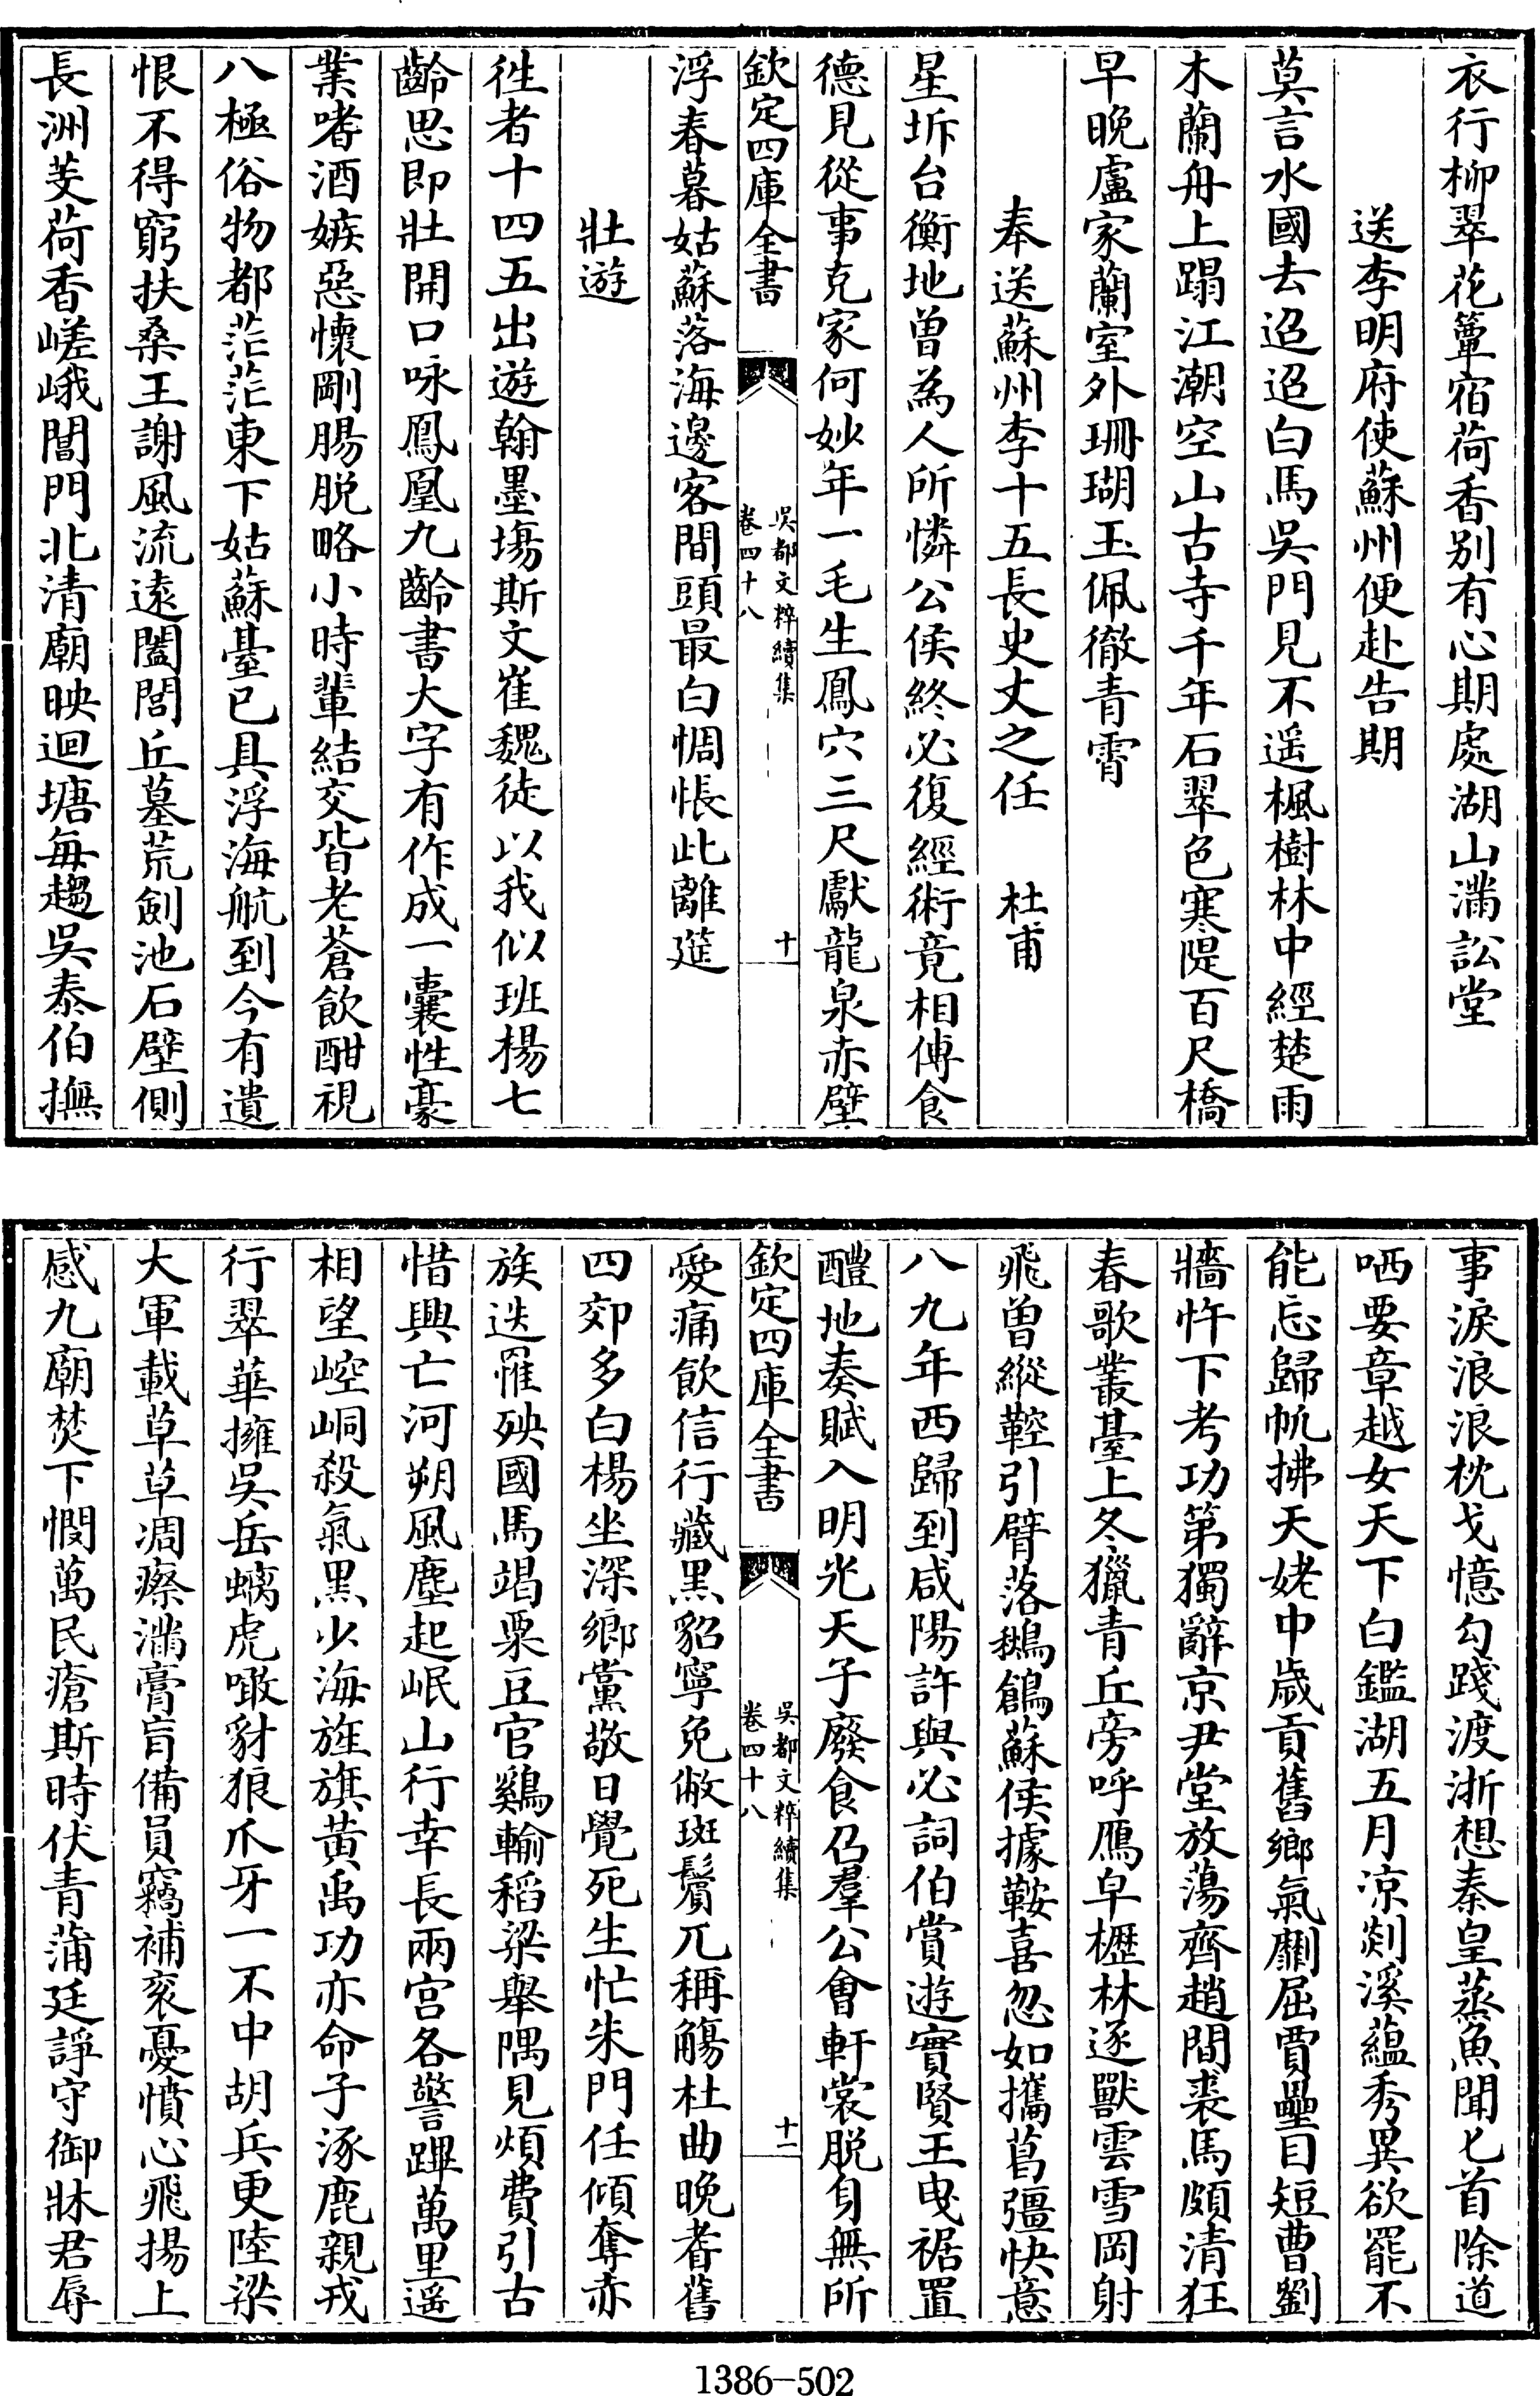 衣行柳翠花簟宿荷香别有心期處湖山滿訟堂
送李明府使蘇州便赴告期
莫言水國去迢迢白馬吳門見不遥楓樹林中經楚雨
木蘭舟上蹋江潮空山古寺千年石翠色寒隄百尺橋
早晚盧家蘭室外珊瑚玉佩徹青霄
奉送蘇州李十五長史丈之任 杜甫
星坼台衡地曾為人所憐公侯終必復經術竟相傳食
德見從事克家何妙年一毛生鳳穴三尺獻龍泉赤壁
欽定四庫全書 吳都文粹續集 卷四十八 十
浮春暮姑蘇落海邊客間頭最白惆悵此離筵
壯遊
徃者十四五出遊翰墨場斯文崔魏徒以我似班楊七
齡思即壯開口咏鳳凰九齡書大字有作成一囊性豪
業嗜酒嫉惡懷剛腸脱略小時輩結交皆老蒼飲酣視
八極俗物都茫茫東下姑蘇臺已具浮海航到今有遺
恨不得窮扶桑王謝風流遠闔閭丘墓荒劍池石壁側
長洲芰荷香嵯峨閶門北清廟映迴塘每趨吳泰伯撫
事淚浪浪枕戈憶勾踐渡浙想秦皇蒸魚聞匕首除道
哂要章越女天下白鑑湖五月凉剡溪藴秀異欲罷不
能忘歸帆拂天姥中歲貢舊鄉氣劘屈賈壘目短曹劉
牆忤下考功第獨辭京尹堂放蕩齊趙間裘馬頗清狂
春歌叢臺上冬獵青丘旁呼鷹皁櫪林逐獸雲雪岡射
飛曾縱鞚引臂落鵝鶬蘇侯據鞍喜忽如攜葛彊快意
八九年西歸到咸陽許與必詞伯賞遊實賢王曳裾置
醴地奏賦入明光天子廢食召羣公會軒裳脱身無所
欽定四庫全書 吳都文粹續集 卷四十八 十一
愛痛飲信行藏黑貂寧免敝斑鬢兀稱觴杜曲晚耆舊
四郊多白楊坐深鄉黨敬日覺死生忙朱門任傾奪赤
族迭罹殃國馬竭粟豆官鷄輸稻粱舉隅見煩費引古
惜興亡河朔風塵起岷山行幸長兩宫各警蹕萬里遥
相望崆峒殺氣黑少海旌旗黄禹功亦命子涿鹿親戎
行翠華擁吳岳螭虎噉豺狼爪牙一不中胡兵更陸梁
大軍載草草凋瘵滿膏肓備員竊補衮憂憤心飛揚上
感九廟焚下憫萬民瘡斯時伏青蒲廷諍守御牀君辱
1386-502